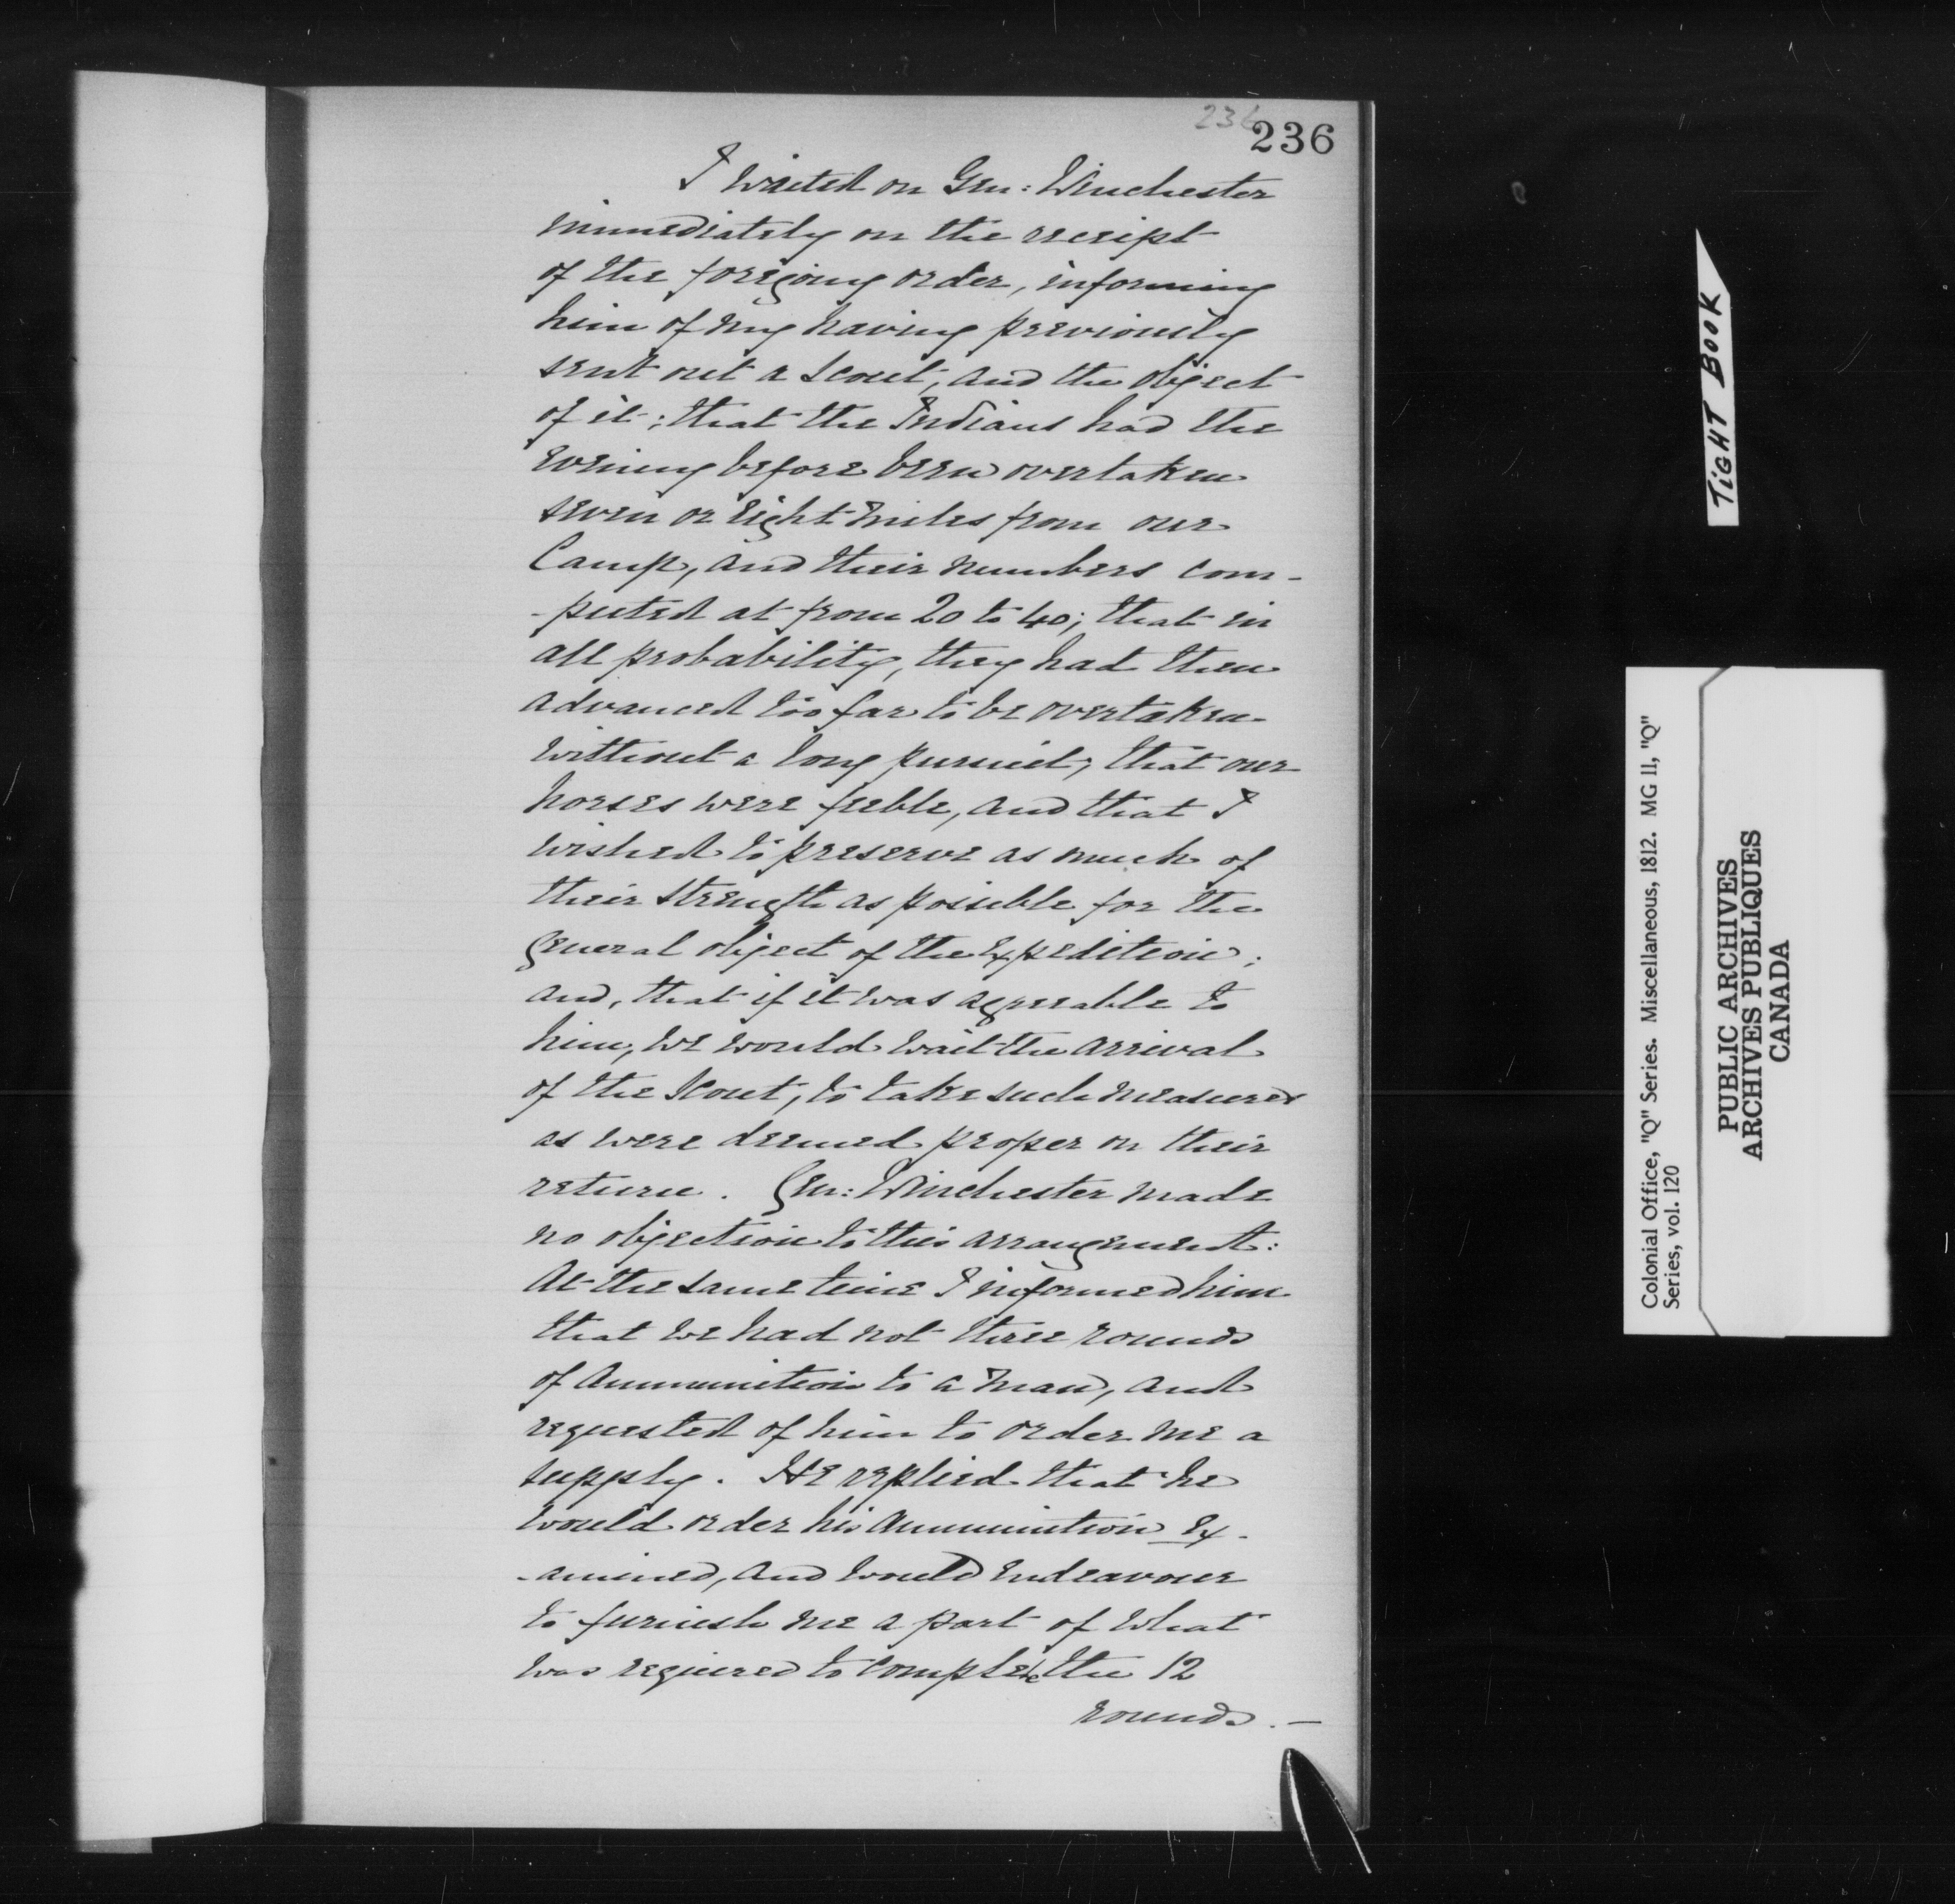 236
236
I waited on Gen: Winchester
immediately on the receipt
of the foregoing order, informing
him of my having previously
sent out a scout, and the object
of it; that the Indians had the
evening before been overtaken
seven or eight miles from our
Camp, and their numbers com-
-puted at from 20 to 40; that in
all probability, they had then
advanced too far to be overtaken
without a long pursuit; that our
horses were feeble, and that I
wished to preserve as much of
their strength as possible for the
general object of the Expedition;
and, that if it was agreeable to
him, we would wait the arrival
of the Scout, to take such measures
as were deemed proper on their
return. Gen: Winchester made
no objection to this arrangement:
At the same time I informed him
that we had not three rounds
of Ammunition to a man, and
requested of him to order me a
supply. He replied that he
would order his Ammunition Ex-
-amined, and would endeavour
to furnish me a part of what
was required to complete the 12
rounds.—
TIGHT BOOK
Colonial Office, "Q" Series. Miscellaneous, 1812. MG 11, "Q"
Series, vol. 120
PUBLIC ARCHIVES
ARCHIVES PUBLIQUES
CANADA